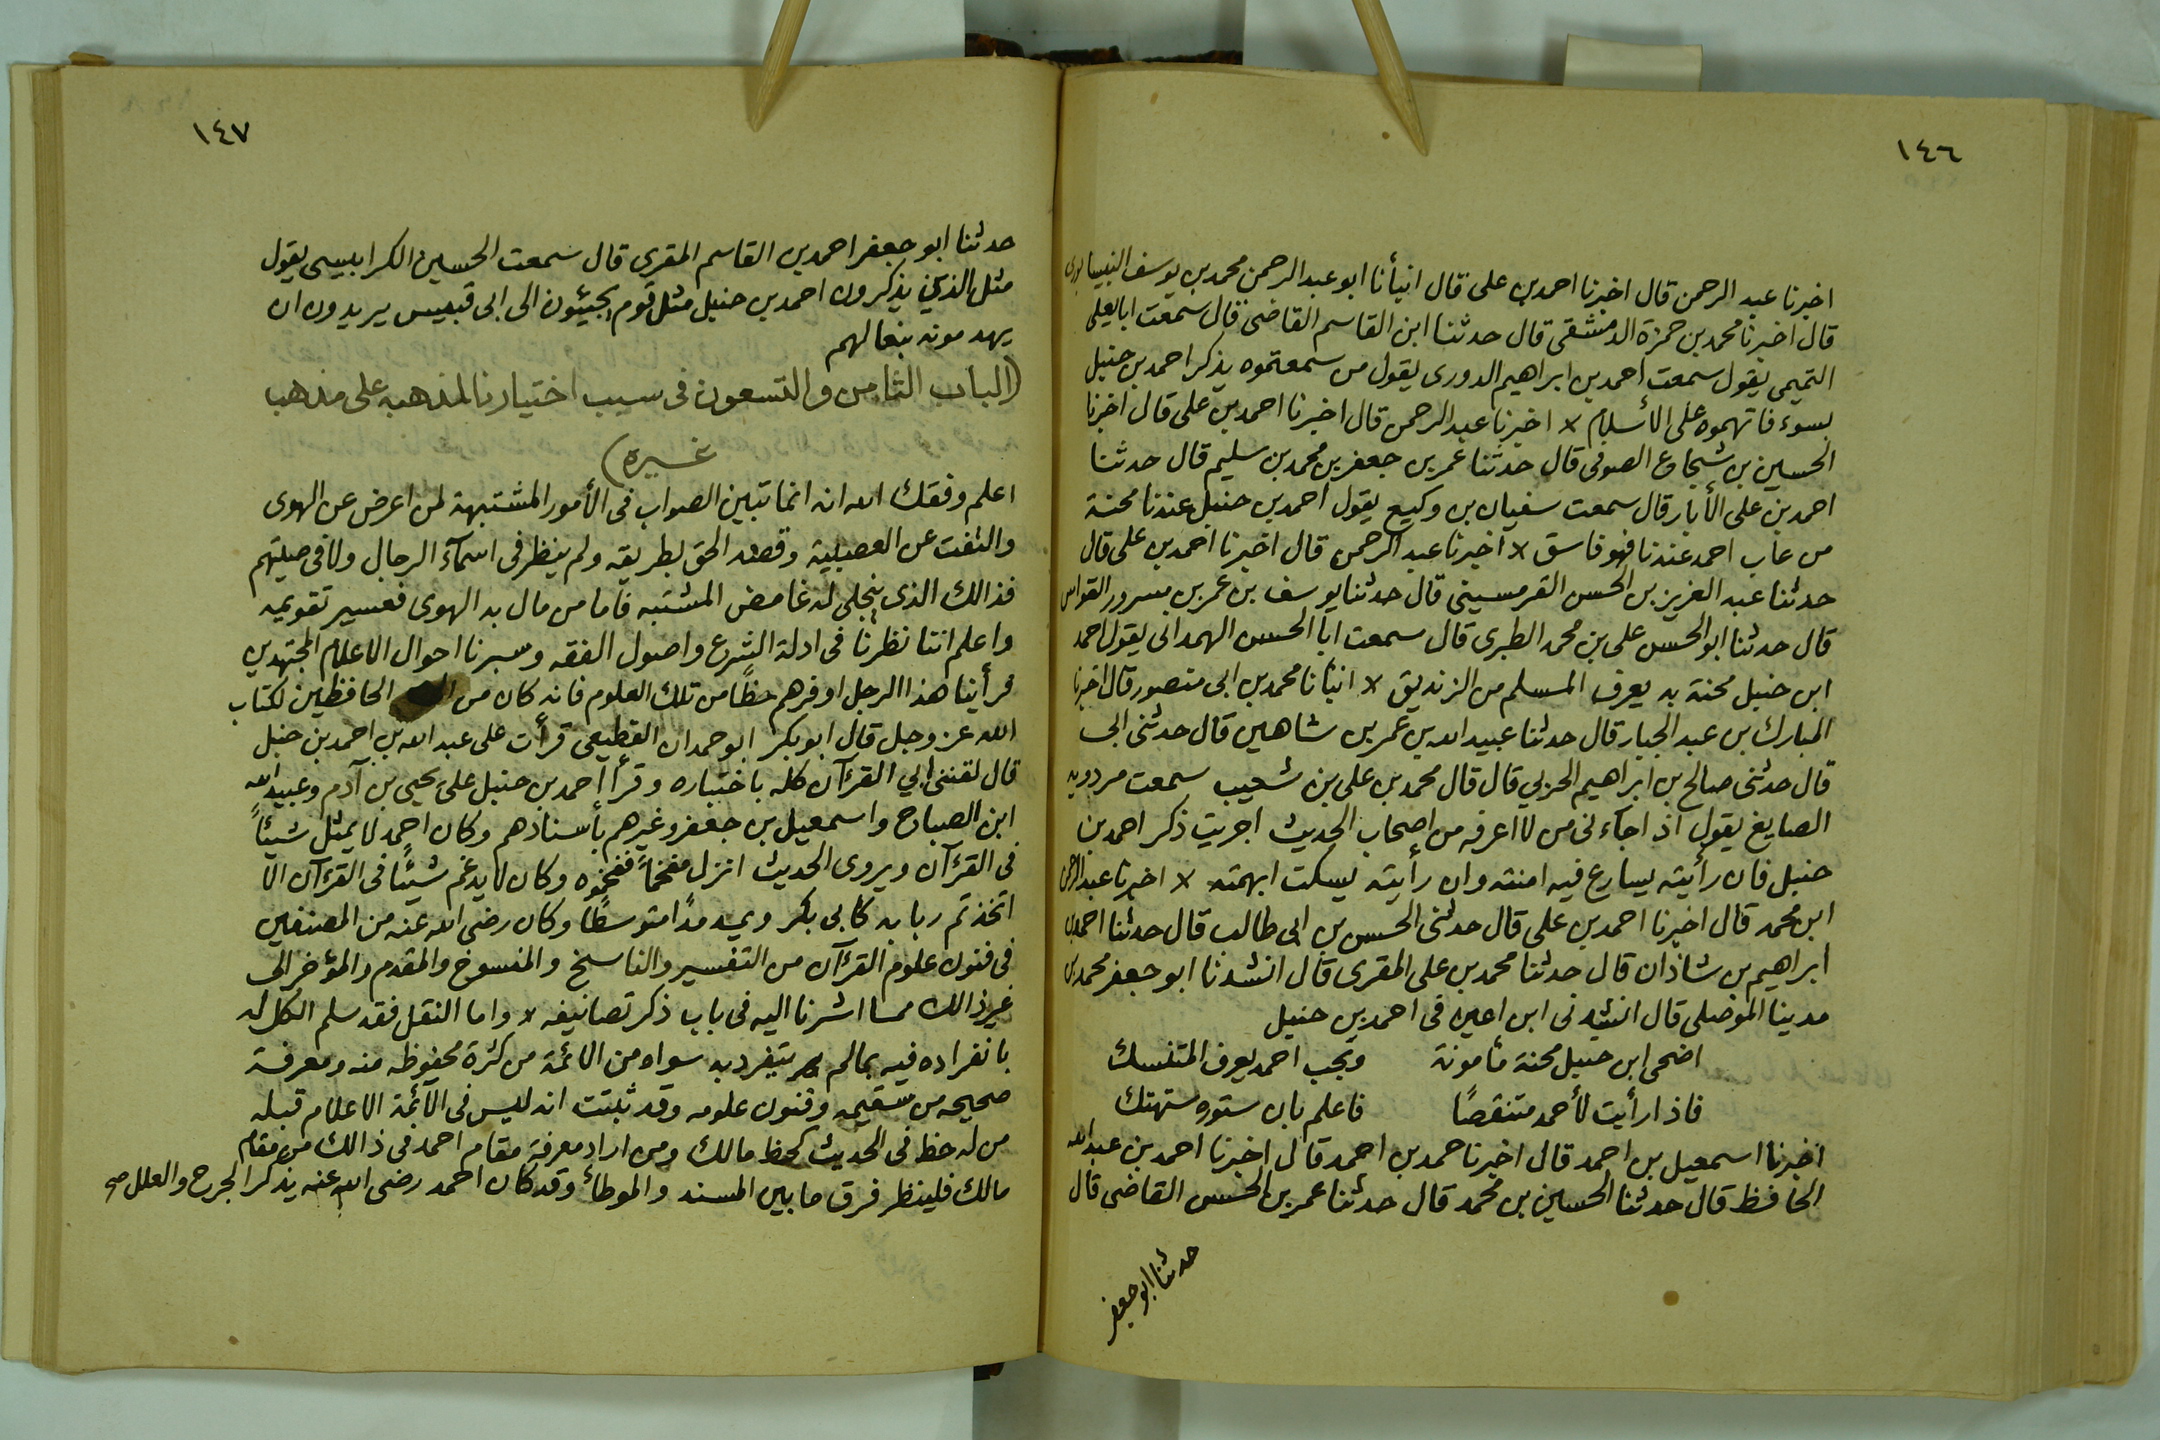 ١٤٦
اخبرنا عبد الرحمن قال اخبرنا احمد بن على قال انبأنا ابو عبد الرحمن محمد بن يوسف النيسابورى
قال اخبرنا محمد بن حمزة الدمشقى قال حدثنا ابن القاسم القاضى قال سمعت ابا يعلى
التميمى يقول سمعت احمد بن ابراهيم الدورى يقول من سمعتموه يذكر احمد بن حنبل
بسوء فاتهموه على الأسلام × اخبرنا عبد الرحمن قال اخبرنا احمد بن على قال اخبرنا
الحسين بن شجاع الصوفى قال حدثنا عمر بن جعفر بن محمد بن سليم قال حدثنا
احمد بن على الأبار قال سمعت سفيان بن وكيع يقول احمد بن حنبل عندنا محنة
من عاب احمد عندنا فهو فاسق × اخبرنا عبد الرحمن قال اخبرنا احمد بن على قال
حدثنا عبد العزيز بن الحسن القرمسينى قال حدثنا يوسف بن عمر بن مسرور القواس
قال حدثنا ابو الحسن على بن محمد الطبرى قال سمعت ابا الحسن الهمدانى يقول احمد
ابن حنبل محنة به يعرف المسلم من الزنديق × انبأنا محمد بن ابى منصور قال اخبرنا
المبارك بن عبد الجبار قال حدثنا عبيد الله بن عمر بن شاهين قال حدثنى ابى
قال حدثنى صالح بن ابراهيم الحربي قال قال محمد بن على بن شعيب سمعت مردويه
الصايغ يقول اذا جآءنى من لا اعرفه من اصحاب الحديث اجريت ذكر احمد بن
حنبل فان رأيته يسارع فيه امنته وان رأيته يسكت ابهمته × اخبرنا عبد الرحمن
ابن محمد قال اخبرنا احمد بن على قال حدثنى الحسن بن ابى طالب قال حدثنا احمد بن
ابراهيم بن شاذان قال حدثنا محمد بن على المقرى قال انشدنا ابو جعفر محمد بن
مدينا الموصلى قال انشدنى ابن اعين فى احمد بن حنبل
اضحى ابن حنبل محنة مأمونة وبحب احمد يعرف المتنسك
فاذا رأيت لأحمد متنقصًا فاعلم بان ستوره ستهتك
اخبرنا اسمعيل بن احمد قال اخبرنا حمد بن احمد قال اخبرنا احمد بن عبد الله
الحافظ قال حدثنا الحسين بن محمد قال حدثنا عمر بن الحسن القاضى قال
حدثنا ابو جعفر
١٤٧
حدثنا ابو جعفر احمد بن القاسم المقرى قال سمعت الحسين الكرابيسى يقول
مثل الذين يذكرون احمد بن حنبل مثل قوم يجيئون الى ابى قبيس يريدون ان
يهدمونه بنعالهم
(الباب الثامن والتسعون فى سبب اختيارنا لمذهبه على مذهب
غيره)
اعلم وفقك الله انه انما تتبين الصواب فى الأمور المشتبهة لمن اعرض عن الهوى
والتفت عن العصبية وقصد الحق بطريقه ولم ينظر فى اسمآء الرجال ولا فى صيتهم
فذالك الذى ينجلى له غامض المشتبه فاما من مال به الهوى فعسير تقويمه
واعلم اننا نظرنا فى ادلة الشرع واصول الفقه وسبرنا احوال الاعلام المجتهدين
فرأينا هذا الرجل اوفرهم حظًا من تلك العلوم فانه كان من الحافظين لكتاب
الله عز وجل قال ابو بكر ابو حمدان القطيعى قرأت على عبد الله بن احمد بن حنبل
قال لقننى ابي القرءآن كله باختياره وقرأ احمد بن حنبل على يحيى بن آدم وعبيد الله
ابن الصباح واسمعيل بن جعفر وغيرهم بأسنادهم وكان احمد لا يمثل شيئاً
فى القرءآن ويروى الحديث انزل مفخماً ففخموه وكان لا يدغم شيئًا فى القرءآن الا
اتخذتم ربابه كابى بكر ويمد مدًا متوسطًا وكان رضى الله عنه من المصنفين
فى فنون علوم القرءآن من التفسير والناسخ والمنسوخ والمقدم والمؤخر الى
غير ذالك مما اشرنا اليه فى باب ذكر تصانيفه × واما النقل فقد سلم الكل له
بانفراده فيه بما لم يتفرد به سواه من الائمة من كثرة محفوظه منه ومعرفة
صحيحه من سقيمه وفنون علومه وقد ثبتت انه ليس فى الآئمة الاعلام قبله
من له حظ فى الحديث كحظ مالك ومن اراد معرفة مقام احمد فى ذالك من مقام
مالك فلينظر فرق ما بين المسند والموطأ وقد كان احمد رضى الله عنه يذكر الجرح والعلل